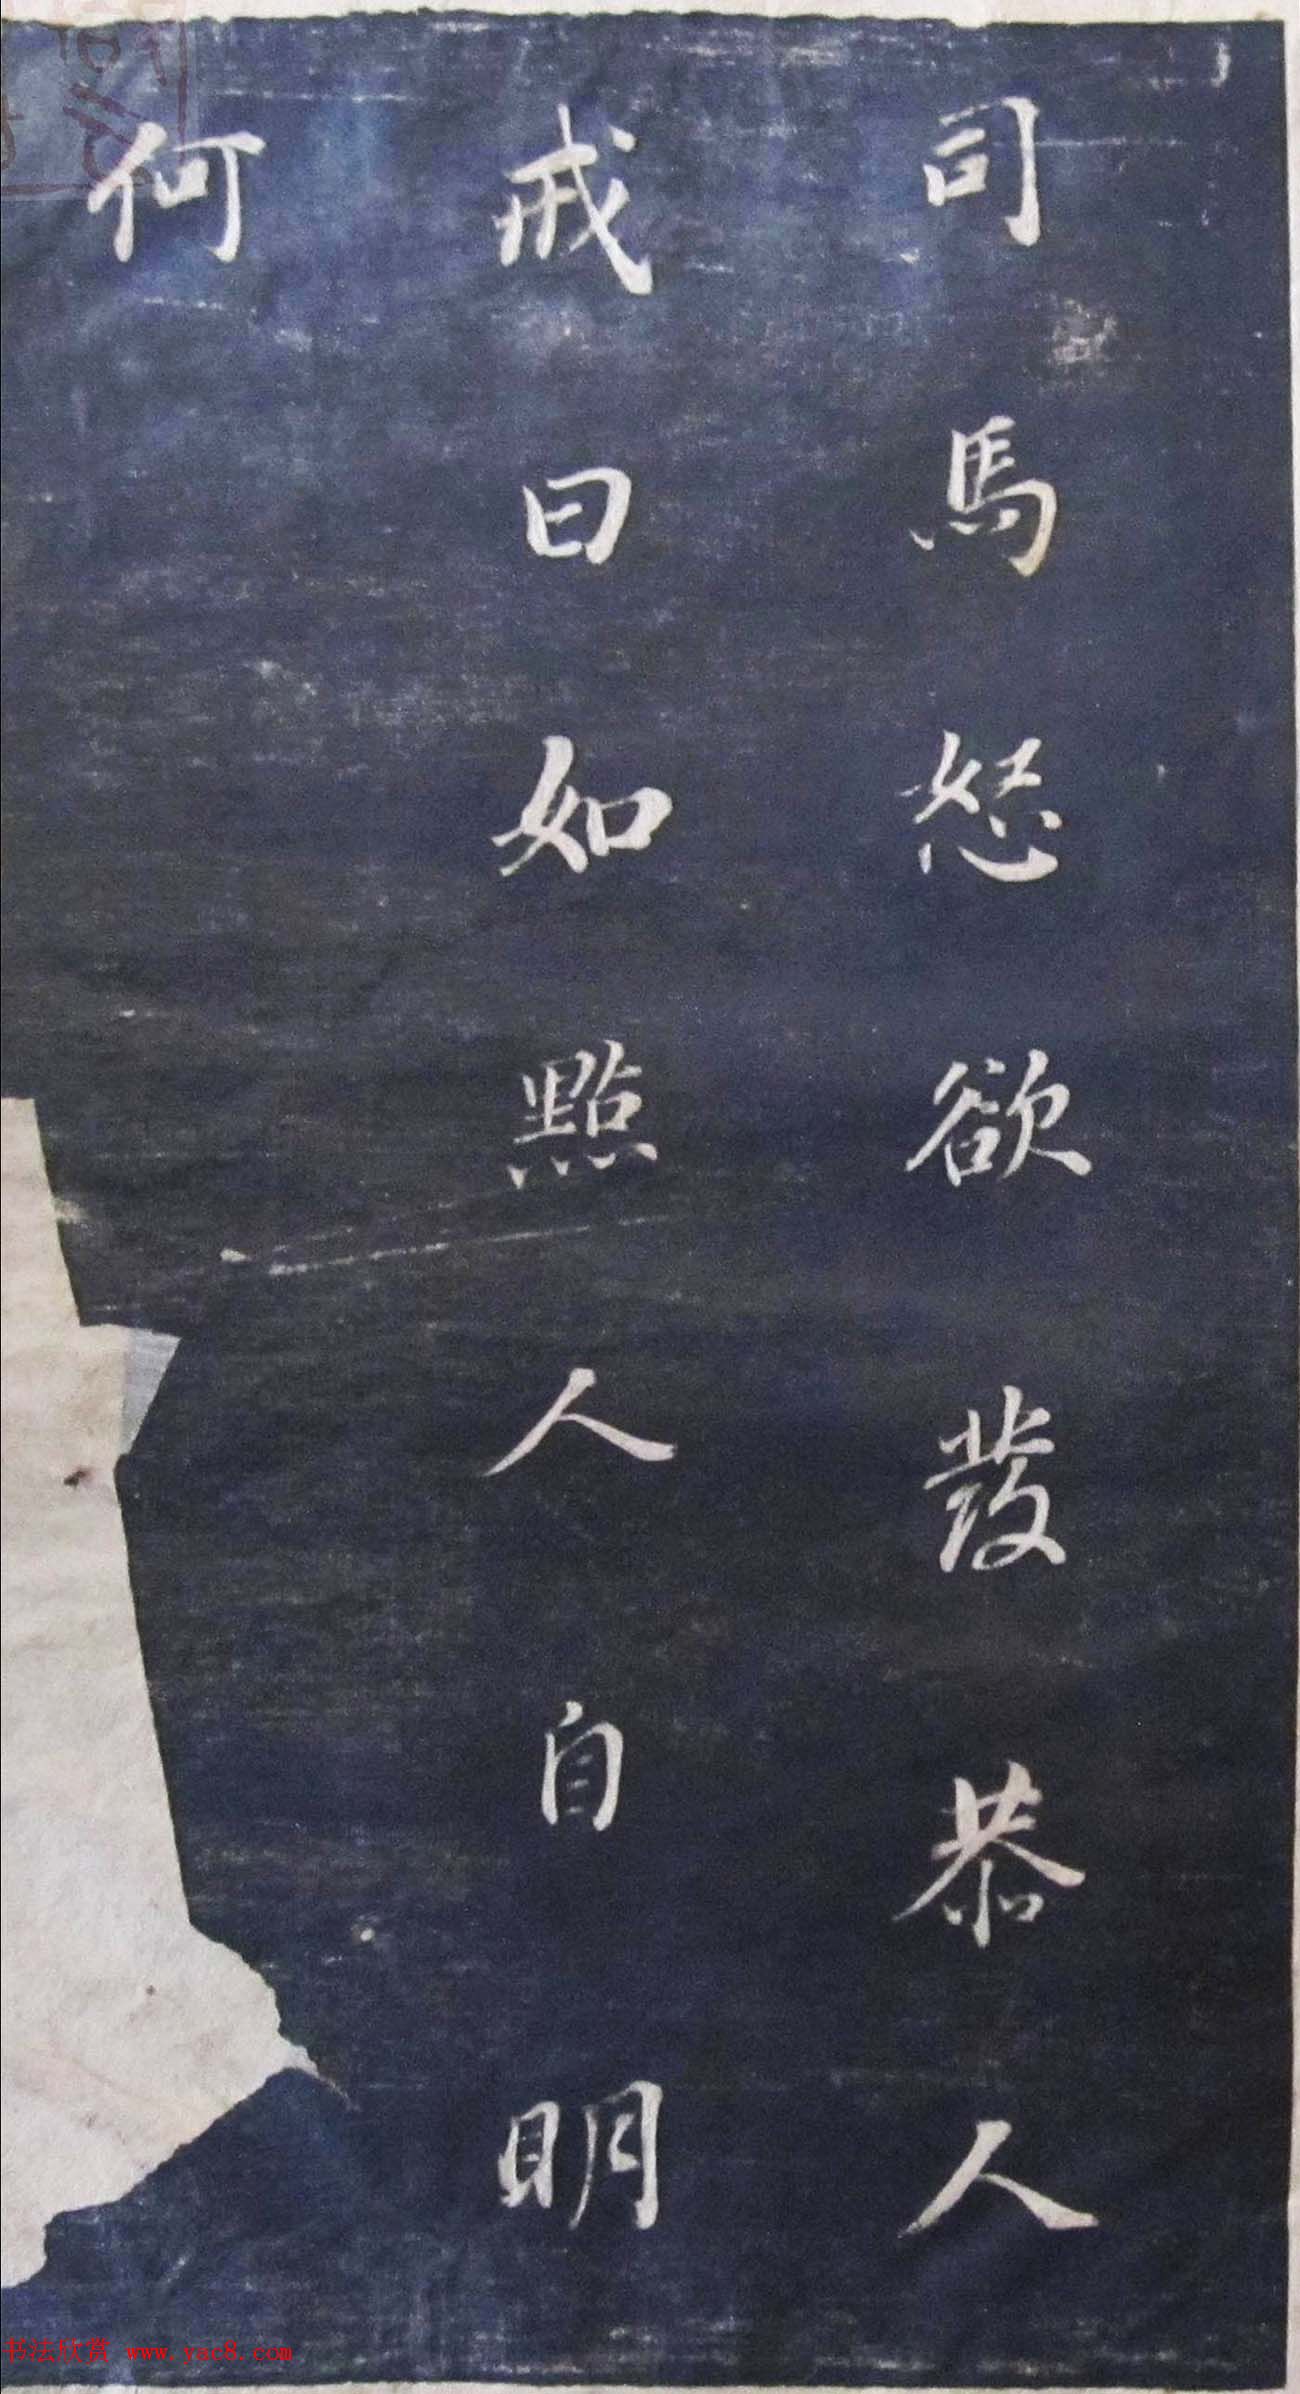 司馬怒欲發恭人
戒曰如點人自明
何
书法欣赏 www.yac8.com